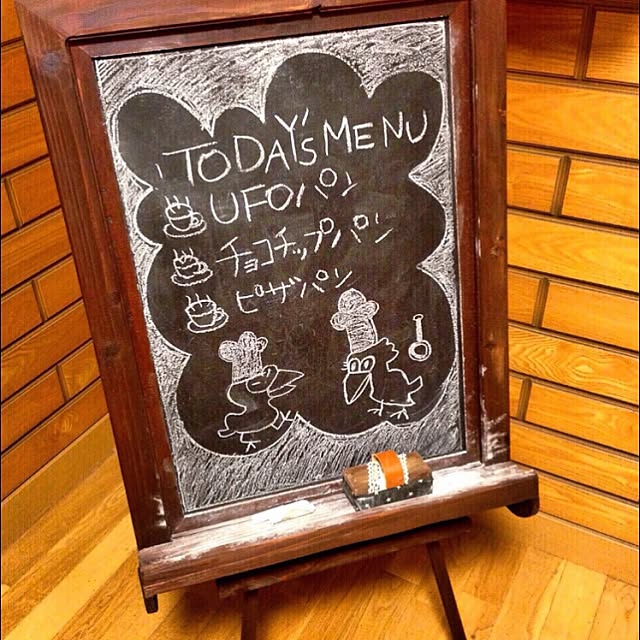 TODAY'S MENU
UFOパン
チョコチップパン
ピザパン